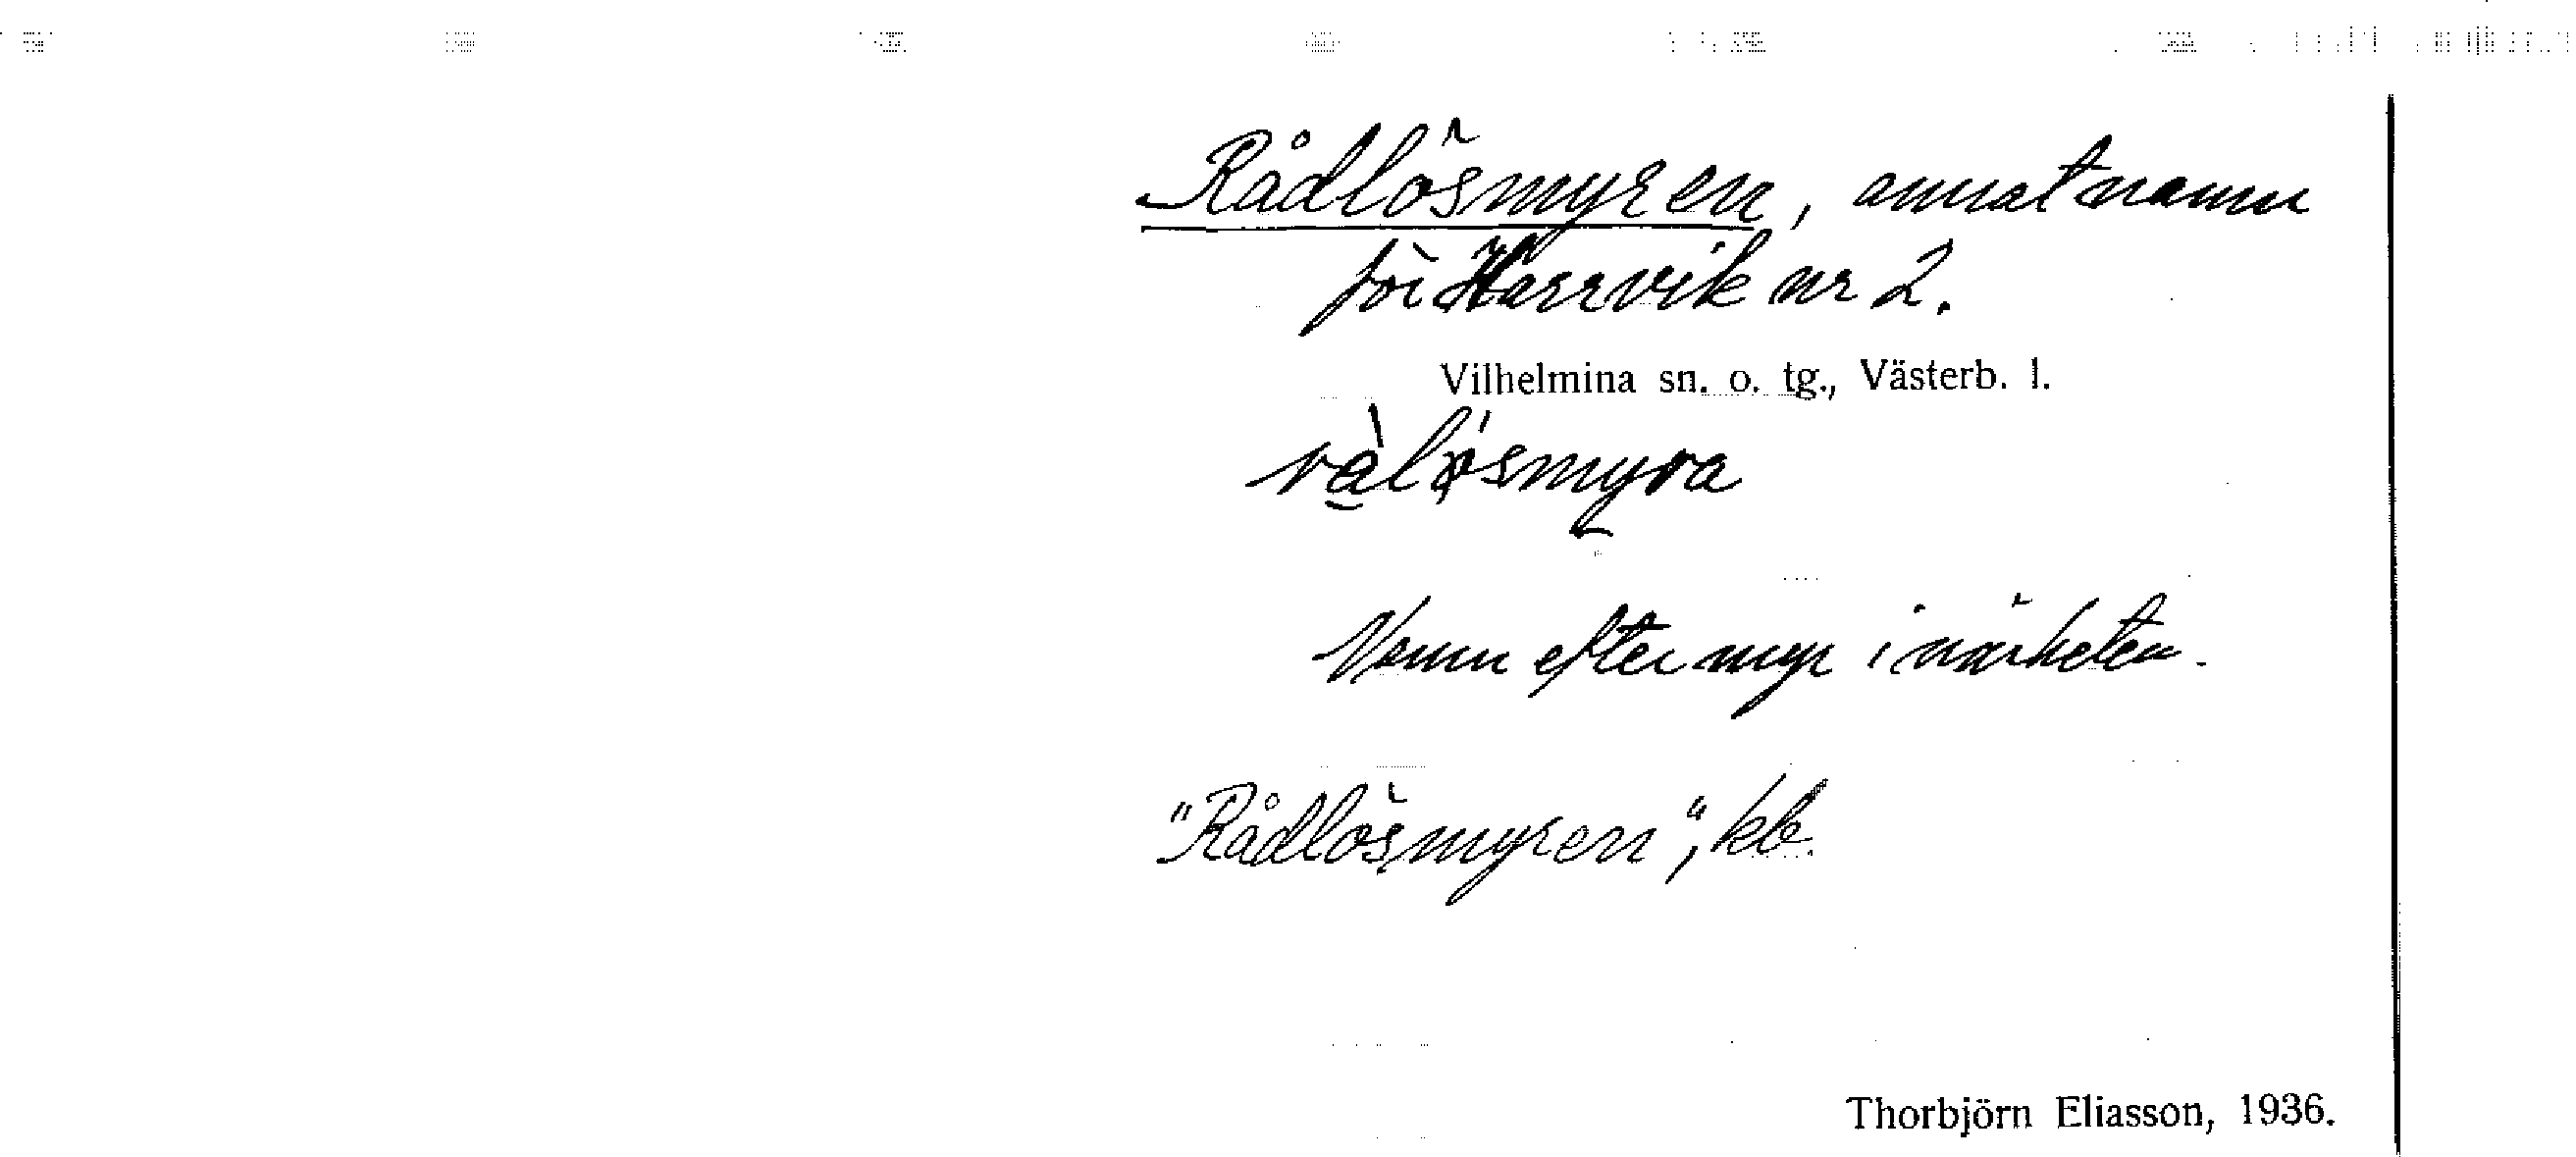 Rådlösmyren, annat namn
för Harrvik nr 2.
Vilhelmina sn. o. tg., Västerb. l.
ràlø'smyra
Namn efter myr i närheten.
"Rådlösmyren", kb.
Thorbjörn Eliasson, 1936.